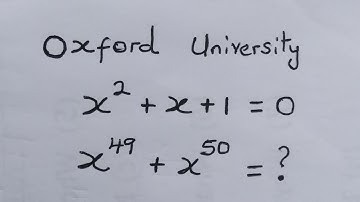 Oxford University
x² + x + 1 = 0
x⁴⁹ + x⁵⁰ = ?